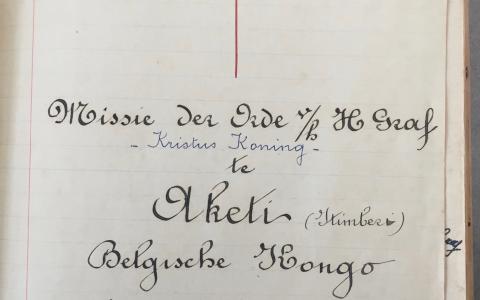 Missie der Orde v/h H Graf
- Kristus Koning -
te
Aketi (Itimberi)
Belgische Kongo